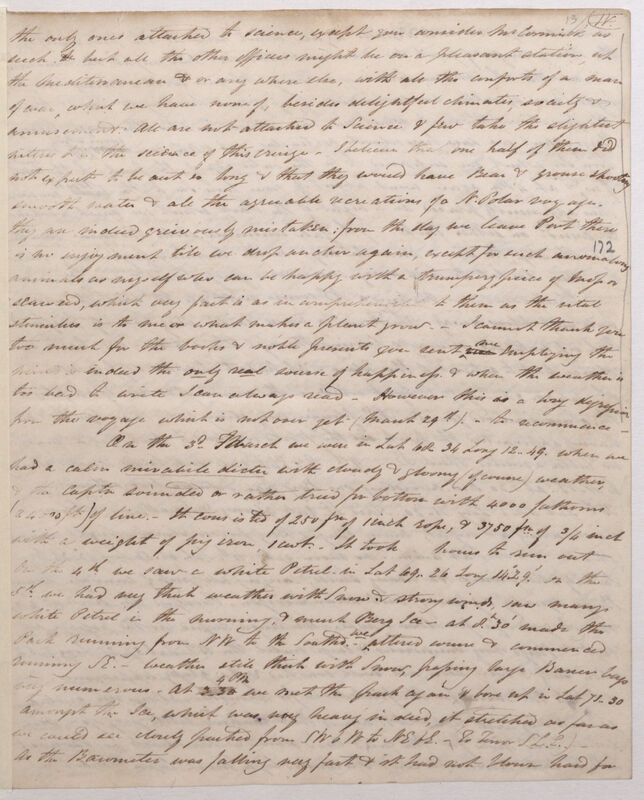 13
the only ones attached to science, except you consider McCormick as
such. & but all the other officers might be on a pleasant station, at
the Mediterranean & or any where else, with all the comforts of a man
of war, what we have none of, besides delightful climates, society &
amusement. All are not attached to Science & few take the slightest
interest in the science of this cruize - I believe that one half of them did
not expect to be out so long & that they would have Bear & grouse shooting
smooth water & all the agreeable recreations of a N. Polar voyage.
they are indeed grievously mistaken; from the day we leave Port there
172
is no enjoyment till we drop anchor again, except for such anomalous
animals as myself who can be happy with a trumpery piece of Moss or
seaweed, which very fact is as incomprehensible to them as the vital
stimulus is to me or what makes a plant grow - I cannot thank you
too much for the books & noble presents you sent me Employing the
mind is indeed the only real source of happiness & when the weather is
too bad to write I can always read - However this is a long digression
from the voyage which is not over yet (March 29th) - to recommence -
On the 3d March we were in Lat 68. 34 Long 12. 49. when we
had a calm mirabile dictu with cloudy & gloomy (of course) weather,
& the Captn sounded or rather tried for bottom with 4000 fathoms
of line. - It consisted of 250 fms of 1 inch rope, & 3750 fms of 3/4 inch
with a weight of pig iron 1 cwt. - It took hours to run out
On the 4th we saw a white Petrel in Lat 69. 26 Long 14° 29' on the
5th we had very thick weather with Snow & strong winds, saw many
white Petrel in the morning, & much Berg Ice - at 8. 30' made the
Pack running from NW to the Southd. we altered course & commenced
running SE. - weather still thick with Snow, passing large Barrier bergs
very numerous. At 4 PM we met the pack again & bore up in Lat 71. 30
amongst the Ice, which was very heavy indeed, it stretched as far as
we could see closely packed from SW b W to NE b E. -
As the Barometer was falling very fast & it had not blown hard for